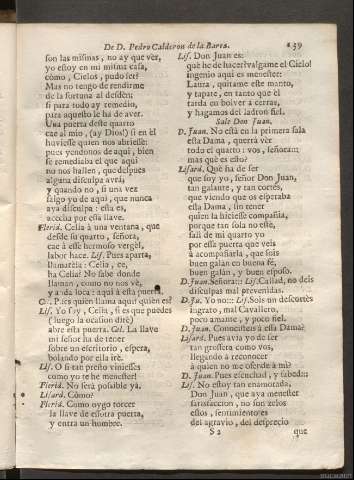 De D. Pedro Calderon de la Barca.
239
son las mismas, no ay que ver,
yo estoy en mi misma casa,
cómo, Cielos, pudo ser?
Mas no tengo de rendirme
de la fortuna al desden:
si para todo ay remedio,
para aquesto le ha de aver.
Una puerta deste quarto
cae al mio, (ay Dios!) si en èl
huviesse quien nos abriesse:
pues yendonos de aqui, bien
se remediaba el que aqui
no nos hallen, que despues
alguna disculpa avrà,
y quando no, si una vez
salgo yo de aqui, que nunca
aya disculpa: esta es,
acecha por esta llave.
Flerid. Celia à una ventana, que
desde su quarto, señora,
cae à esse hermoso vergèl,
labor hace. Lis. Pues aparta,
llamarèla: Celia, ce,
ha Celia! No sabe donde
llaman, como no nos vè,
y anda loca: aqui à esta puerta.
C. Pues quien llama aqui quien es?
Lis. Yo soy, Celia, si es que puedes
(luego la ocasion dirè)
abre esta puerta. Cel. La llave
mi señor ha de tener
sobre un escritorio, espera,
bolando por ella irè.
Lis. O si tan presto viniesses
como yo te he menester!
Flerid. No serà possible ya.
Lisard. Còmo?
Flerid. Como oygo torcer
la llave de essotra puerta,
y entra un hombre.
Lis. Don Juan es:
què he de hacer? valgame el Cielo!
ingenio aqui es menester:
Laura, quitame este manto,
y tapate, en tanto que èl
tarda en bolver à cerrar,
y hagamos del ladron fiel.
Sale Don Juan.
D. Juan. No està en la primera sala
esta Dama, querrà ver
todo el quarto: vos, señora?
mas què es esto?
Lisard. Què ha de ser
que soy yo, señor Don Juan,
tan galante, y tan cortès,
que viendo que os esperaba
esta Dama, sin tener
quien la hiciesse compañia,
porque tan sola no estè,
salì de mi quarto yo
por essa puerta que veis
à acompañarla, que sois
buen galan en buena fè,
buen galàn, y buen esposo.
D. Juan. Señora:: Lis. Callad, no deis
disculpas mal prevenidas.
D. Ju. Yo no::: Lis. Sois un descortès
ingrato, mal Cavallero,
poco amante, y poco fiel.
D. Juan. Conociais à esta Dama?
Lisard. Pues avia yo de ser
tan grossera como vos,
llegando à reconocer
à quien no me ofende à mì?
D. Juan. Pues escuchad, y sabed::
Lis. No estoy tan enamorada,
Don Juan, que aya menester
satisfaccion, no son zelos
estos, sentimiento es
del agravio, del desprecio
S 2
que